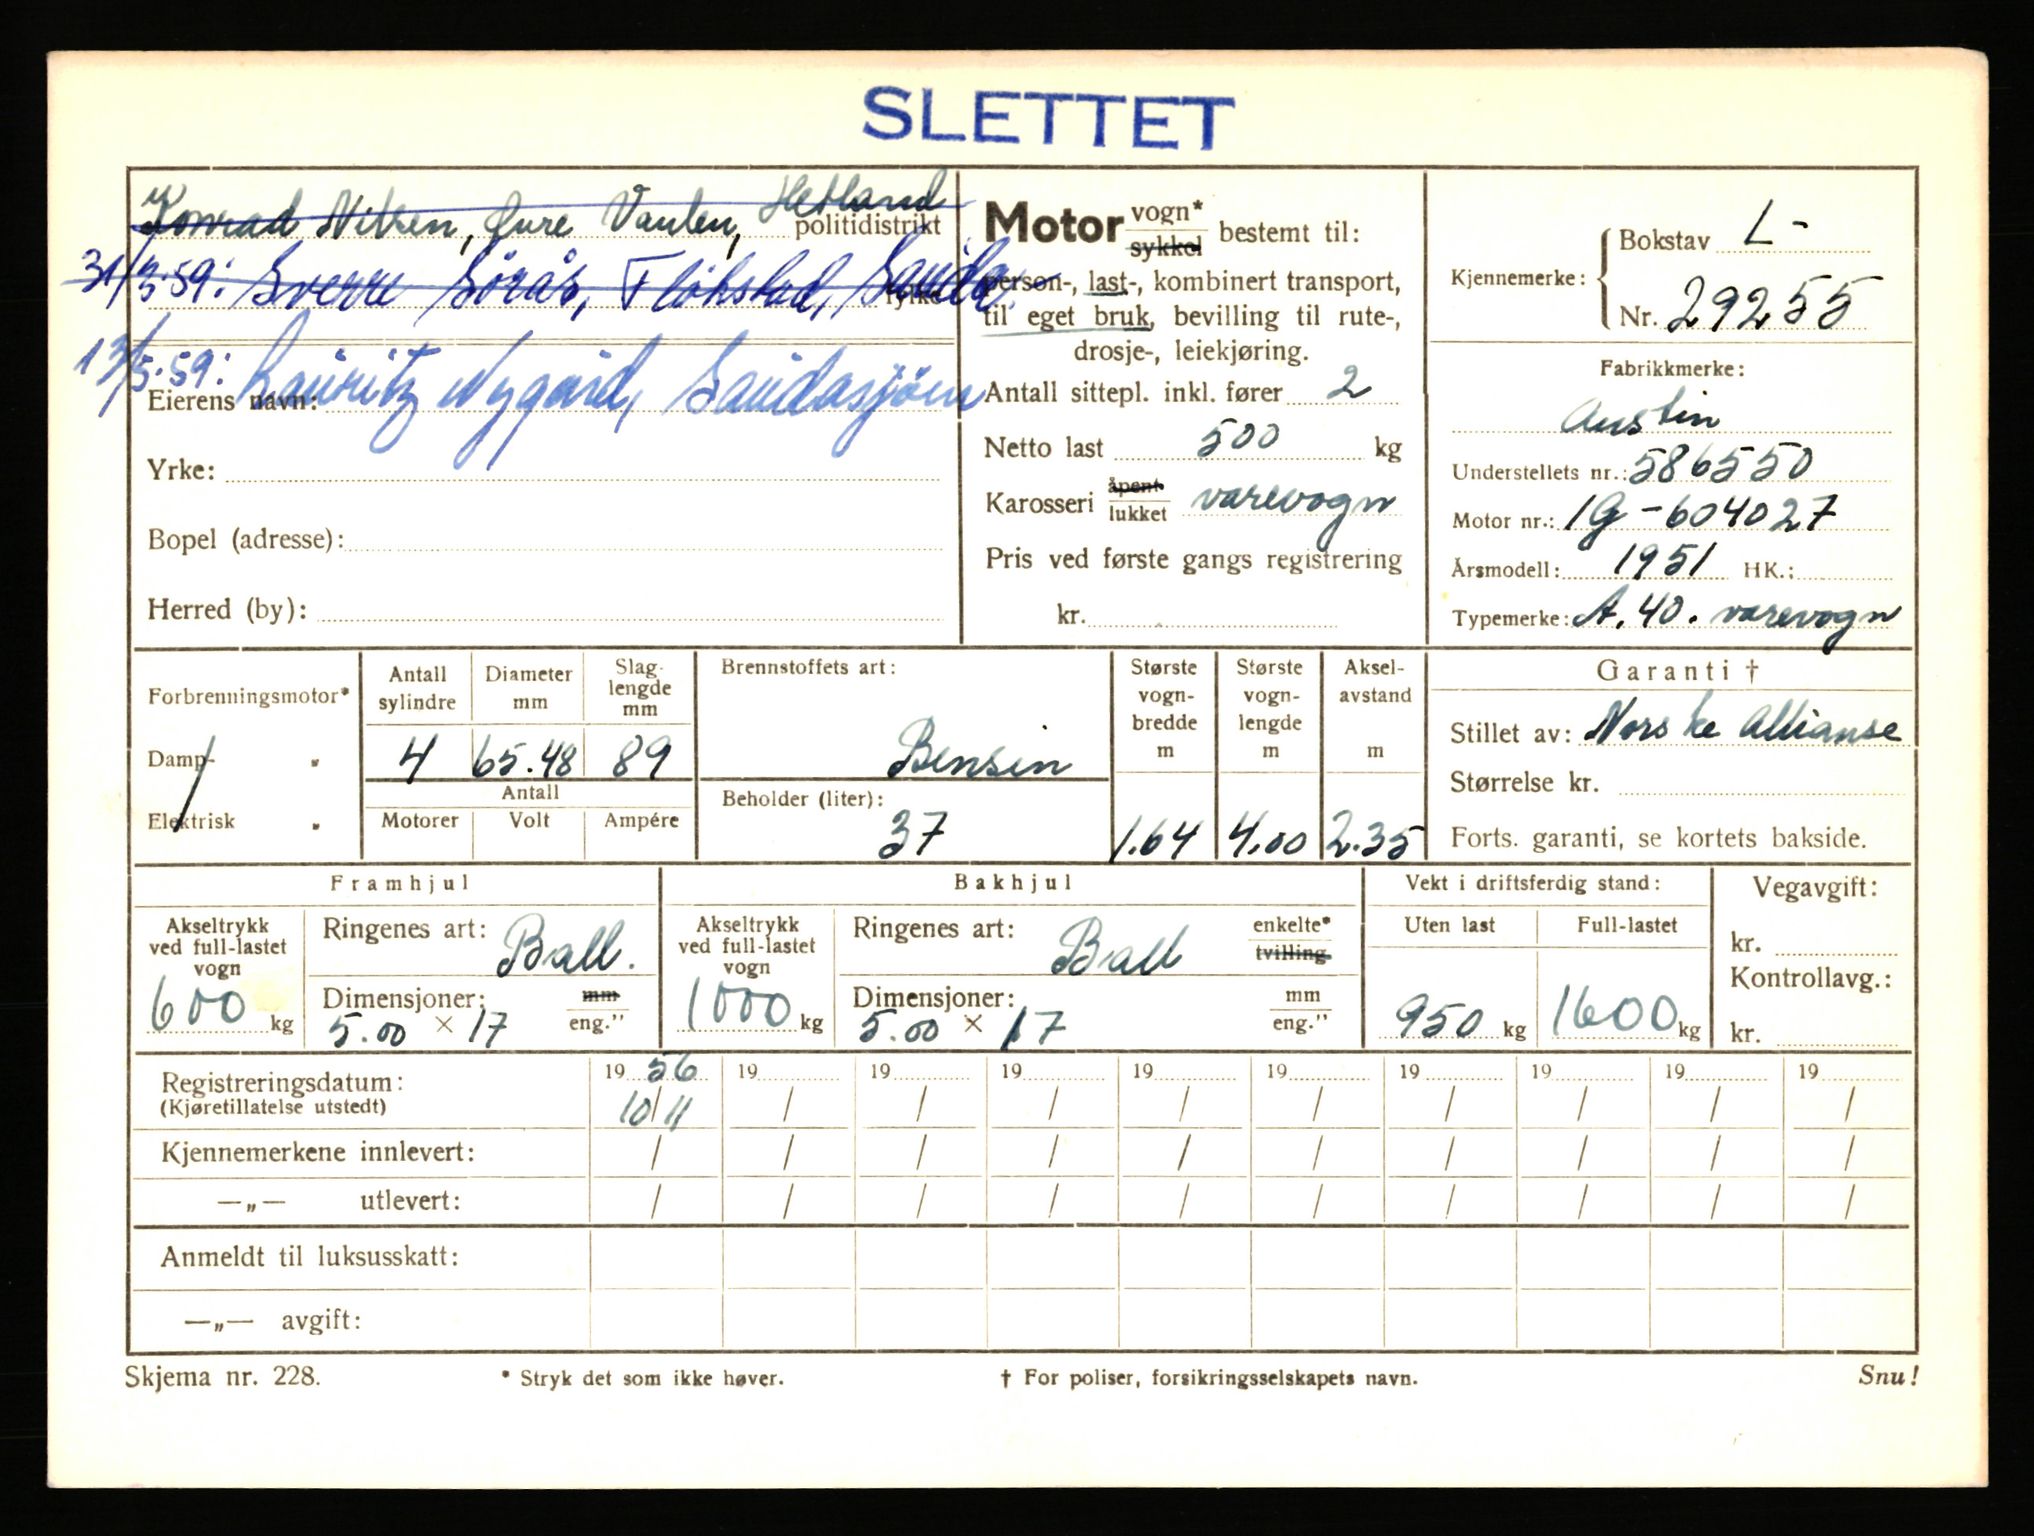 SLETTET
Konrad Nilsen, Øvre Vaulen, Hetland politidistrikt
31/3.59: Sverre Sørås, Fløkstad, Sauda fylke
13/5.59: Lauritz Nygård, Saudasjøen
Eierens navn:
Yrke:
Bopel (adresse):
Herred (by):
Motor vogn* sykkel bestemt til:
person-, last-, kombinert transport,
til eget bruk, bevilling til rute-,
drosje-, leiekjøring.
Antall sittepl. inkl. fører 2
Netto last 500 kg
Karosseri åpent lukket varevogn
Pris ved første gangs registrering
kr.
Kjennemerke: Bokstav L-
Nr. 29255
Fabrikkmerke:
Austin
Understellets nr.: 586550
Motor nr.: 1G-604027
Årsmodell: 1951 HK.:
Typemerke: A.40. varevogn
Forbrenningsmotor*
Damp- "
Elektrisk "
Antall sylindre Diameter mm Slaglengde mm
4 65.48 89
Antall
Motorer Volt Ampére
Brennstoffets art:
Bensin
Beholder (liter):
37
Største vognbredde m Største vognlengde m Akselavstand m
1.64 4.00 2.35
Garanti †
Stillet av: Norske Allianse
Størrelse kr.
Forts. garanti, se kortets bakside.
Framhjul
Akseltrykk ved full-lastet vogn
600 kg
Ringenes art: Ball.
Dimensjoner: mm
5.00 × 17 eng."
Bakhjul
Akseltrykk ved full-lastet vogn
1000 kg
Ringenes art: Ball enkelte* tvilling
Dimensjoner: mm
5.00 × 17 eng."
Vekt i driftsferdig stand:
Uten last Full-lastet
950 kg 1600 kg
Vegavgift:
kr.
Kontrollavg.:
kr.
Registreringsdatum: 19 56 19 19 19 19 19 19 19 19 19
(Kjøretillatelse utstedt) 10/11 / / / / / / / / /
Kjennemerkene innlevert: / / / / / / / / / /
—„— utlevert: / / / / / / / / / /
Anmeldt til luksusskatt:
—„— avgift:
Skjema nr. 228. * Stryk det som ikke høver. † For poliser, forsikringsselskapets navn. Snu!